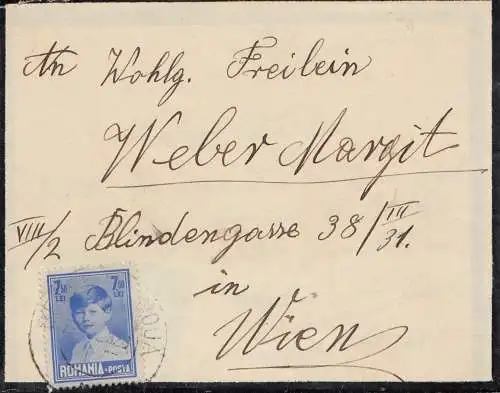 An Wohlg. Freilein
Weber Margit
VIII/2 Blindengasse 38/III/31.
in
Wien
7,50 LEI 7,50 LEI
ROMANIA·POSTA